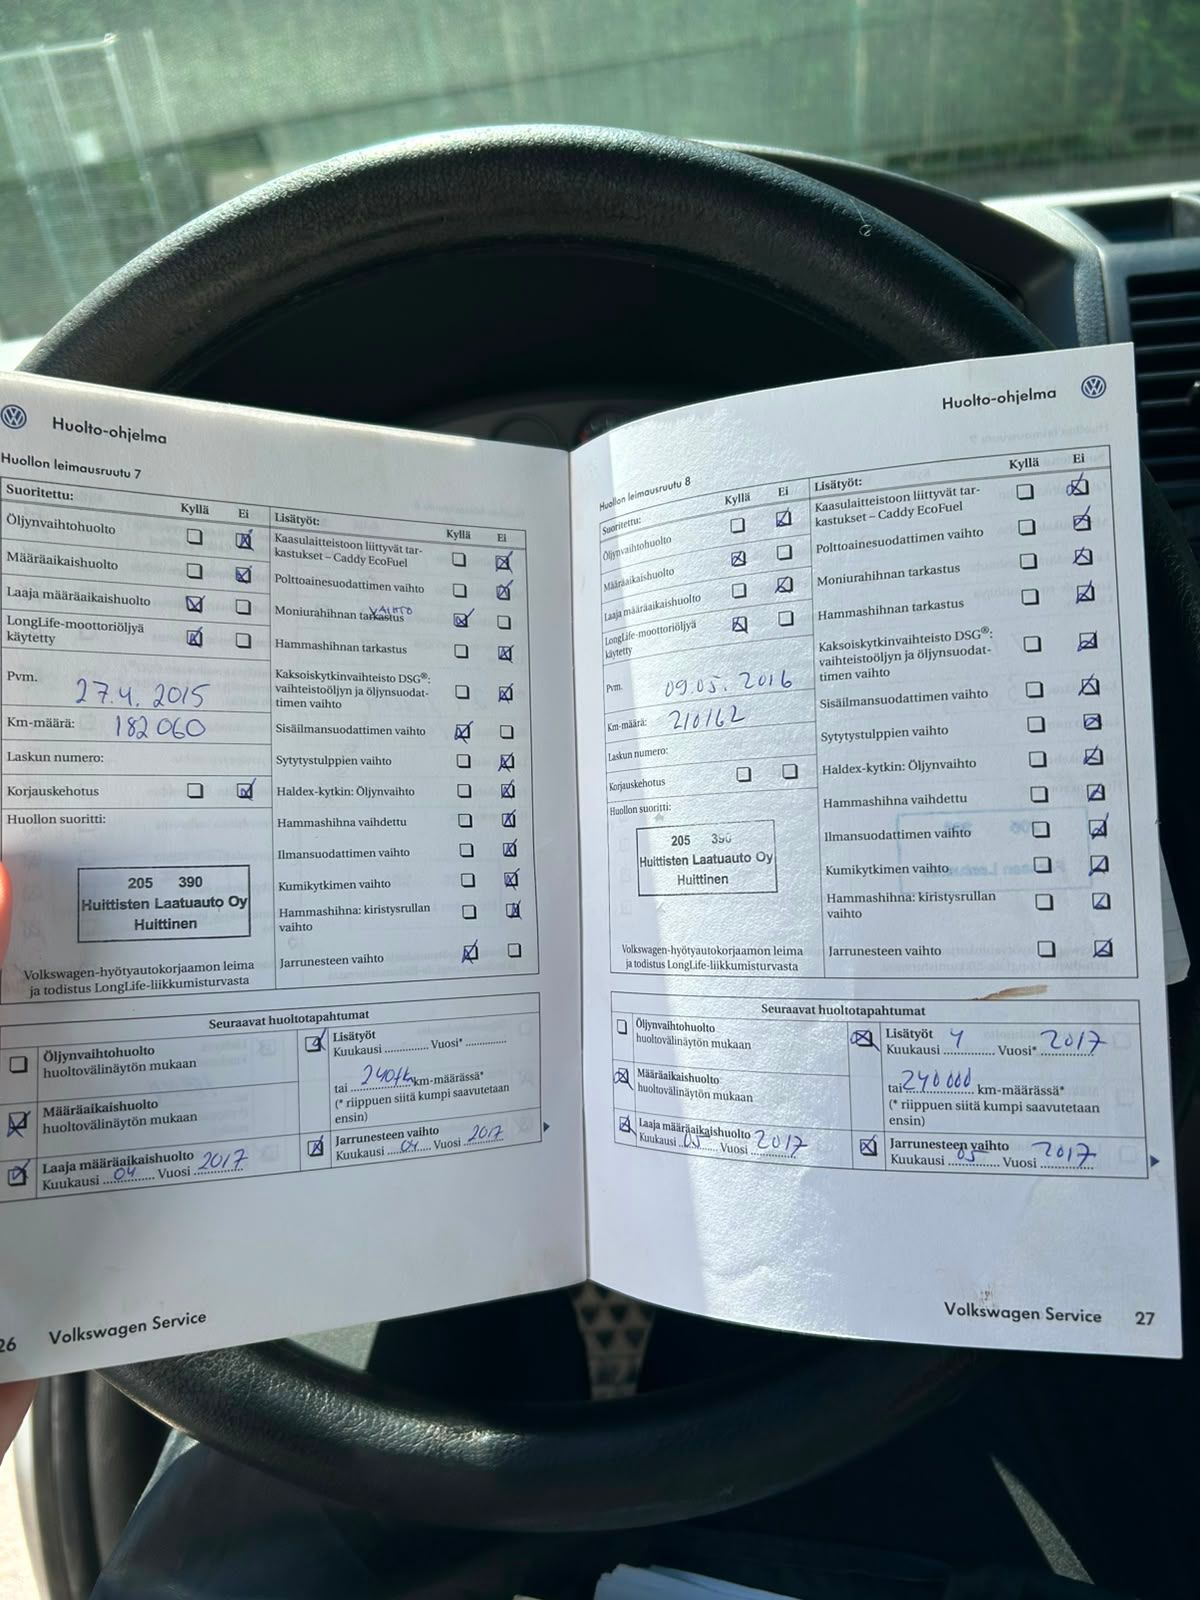 Huolto-ohjelma
Huollon leimausruutu 7
Suoritettu:
Kyllä Ei
Öljynvaihtohuolto
Määräaikaishuolto
Laaja määräaikaishuolto
LongLife-moottoriöljyä
käytetty
Pvm. 27.4. 2015
Km-määrä: 182 060
Laskun numero:
Korjauskehotus
Huollon suoritti:
205 390
Huittisten Laatuauto Oy
Huittinen
Volkswagen-hyötyautokorjaamon leima
ja todistus LongLife-liikkumisturvasta
Lisätyöt:
Kyllä Ei
Kaasulaitteistoon liittyvät tar-
kastukset – Caddy EcoFuel
Polttoainesuodattimen vaihto
VAIHTO
Moniurahihnan tarkastus
Hammashihnan tarkastus
Kaksoiskytkinvaihteisto DSG®:
vaihteistoöljyn ja öljynsuodat-
timen vaihto
Sisäilmansuodattimen vaihto
Sytytystulppien vaihto
Haldex-kytkin: Öljynvaihto
Hammashihna vaihdettu
Ilmansuodattimen vaihto
Kumikytkimen vaihto
Hammashihna: kiristysrullan
vaihto
Jarrunesteen vaihto
Seuraavat huoltotapahtumat
Öljynvaihtohuolto
huoltovälinäytön mukaan
Määräaikaishuolto
huoltovälinäytön mukaan
Laaja määräaikaishuolto
Kuukausi 04 Vuosi 2017
Lisätyöt
Kuukausi ............ Vuosi* ............
tai km-määrässä*
(* riippuen siitä kumpi saavutetaan
ensin)
Jarrunesteen vaihto
Kuukausi 04 Vuosi 2017
26 Volkswagen Service
Huolto-ohjelma
Huollon leimausruutu 8
Suoritettu:
Kyllä Ei
Öljynvaihtohuolto
Määräaikaishuolto
Laaja määräaikaishuolto
LongLife-moottoriöljyä
käytetty
Pvm. 09.05. 2016
Km-määrä: 210162
Laskun numero:
Korjauskehotus
Huollon suoritti:
205 390
Huittisten Laatuauto Oy
Huittinen
Volkswagen-hyötyautokorjaamon leima
ja todistus LongLife-liikkumisturvasta
Lisätyöt:
Kyllä Ei
Kaasulaitteistoon liittyvät tar-
kastukset – Caddy EcoFuel
Polttoainesuodattimen vaihto
Moniurahihnan tarkastus
Hammashihnan tarkastus
Kaksoiskytkinvaihteisto DSG®:
vaihteistoöljyn ja öljynsuodat-
timen vaihto
Sisäilmansuodattimen vaihto
Sytytystulppien vaihto
Haldex-kytkin: Öljynvaihto
Hammashihna vaihdettu
Ilmansuodattimen vaihto
Kumikytkimen vaihto
Hammashihna: kiristysrullan
vaihto
Jarrunesteen vaihto
Seuraavat huoltotapahtumat
Öljynvaihtohuolto
huoltovälinäytön mukaan
Määräaikaishuolto
huoltovälinäytön mukaan
Laaja määräaikaishuolto
Kuukausi 05 Vuosi 2017
Lisätyöt
Kuukausi 4 Vuosi* 2017
tai 240 000 km-määrässä*
(* riippuen siitä kumpi saavutetaan
ensin)
Jarrunesteen vaihto
Kuukausi 05 Vuosi 2017
Volkswagen Service 27